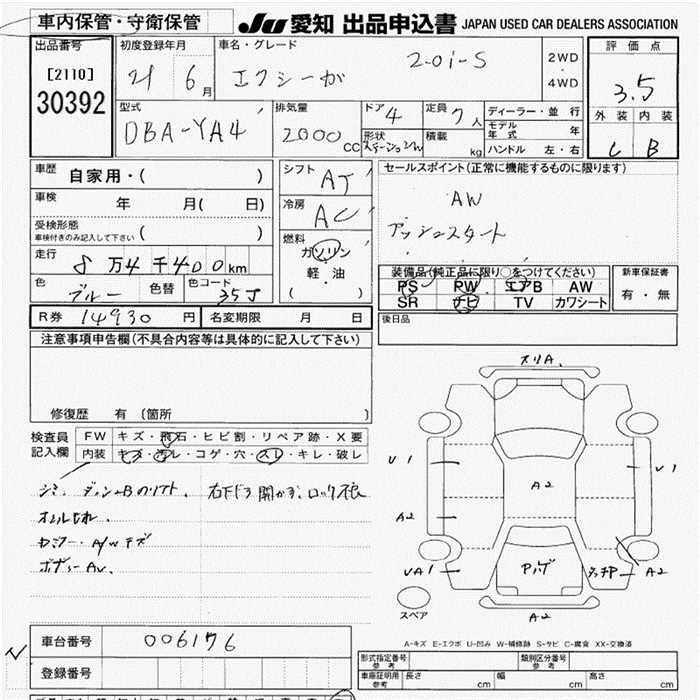 車内保管・守衛保管
JU 愛知 出品申込書 JAPAN USED CAR DEALERS ASSOCIATION
出品番号
[2110]
30392
初度登録年月
21 6月
車名・グレード
エクシーガ 2.0i-S
2WD
4WD
評価点
3.5
外装 内装
C B
型式
DBA-YA4
排気量
2000 cc
ドア 4
形状
ステーションワゴン
定員 7人
積載 kg
ディーラー・並行
モデル年式 年
ハンドル 左・右
車歴
自家用・( )
車検 年 月( 日)
受検形態
車検付きのみ記入して下さい ( )
走行 8万4千400km
色 ブルー 色替 色コード 35J
R券 14930円 名変期限 月 日
シフト AT
冷房 AC
燃料
ガソリン
軽・油
( )
セールスポイント(正常に機能するものに限ります)
AW
プッシュスタート
装備品(純正品に限り○をつけてください)
PS PW エアB AW
SR ナビ TV カワシート
新車保証書
有・無
後日品
注意事項申告欄(不具合内容等は具体的に記入して下さい)
修復歴 有 (箇所 )
検査員記入欄
FW キズ・飛石・ヒビ割・リペア跡・X要
内装 キズ・汚レ・コゲ・穴・スレ・キレ・破レ
シミ ダッシュBのソリ 右下ドラ開かず、ロック不良
ホイルキズ
ボディーAU.
スリA.
U1
U1
A2
A2
UA1
タッチP
A2
A2
スペア
A-キズ E-エクボ U-凹み W-補修跡 S-サビ C-腐食 XX-交換済
車台番号 006176
登録番号
形式指定番号 参考
類別区分番号 参考
車庫証明用 参考 長さ cm 幅 cm 高さ cm